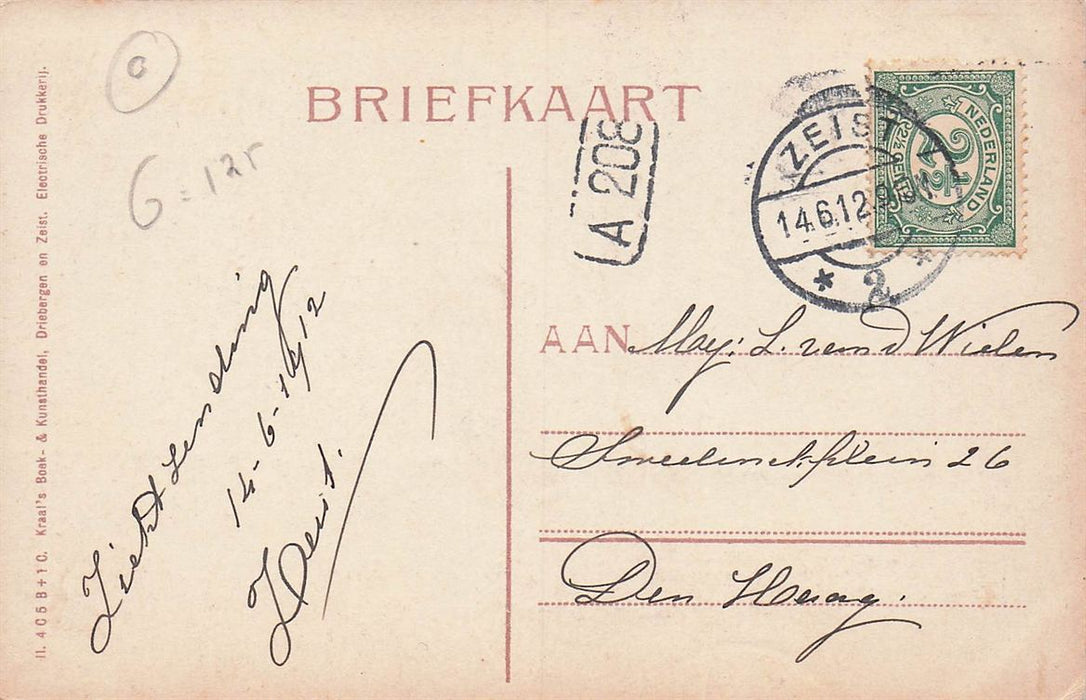 BRIEFKAART
A 208
ZEIST
14.6.12
2
NEDERLAND
2½
G = 12r
Zicht zending
14-6-1912
Zeist.
AAN Mej: L. van d Wielen
Sweelinckplein 26
Den Haag.
11. 405 B+1 C. Kraal's Boek- & Kunsthandel, Driebergen en Zeist. Electrische Drukkerij.